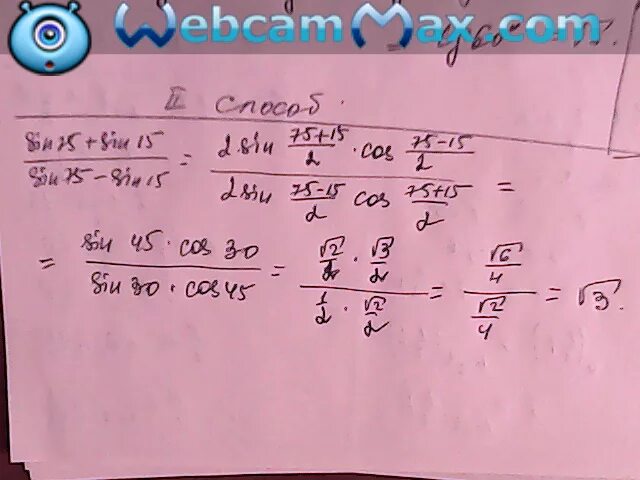 WebcamMax.com
= g 60° = √3.
II способ.
sin 75 + sin 15 / sin 75 - sin 15 = 2 sin 75+15/2 · cos 75-15/2 / 2 sin 75-15/2 cos 75+15/2 =
= sin 45 · cos 30 / sin 30 · cos 45 = √2/2 · √3/2 / 1/2 · √2/2 = √6/4 / √2/4 = √3.